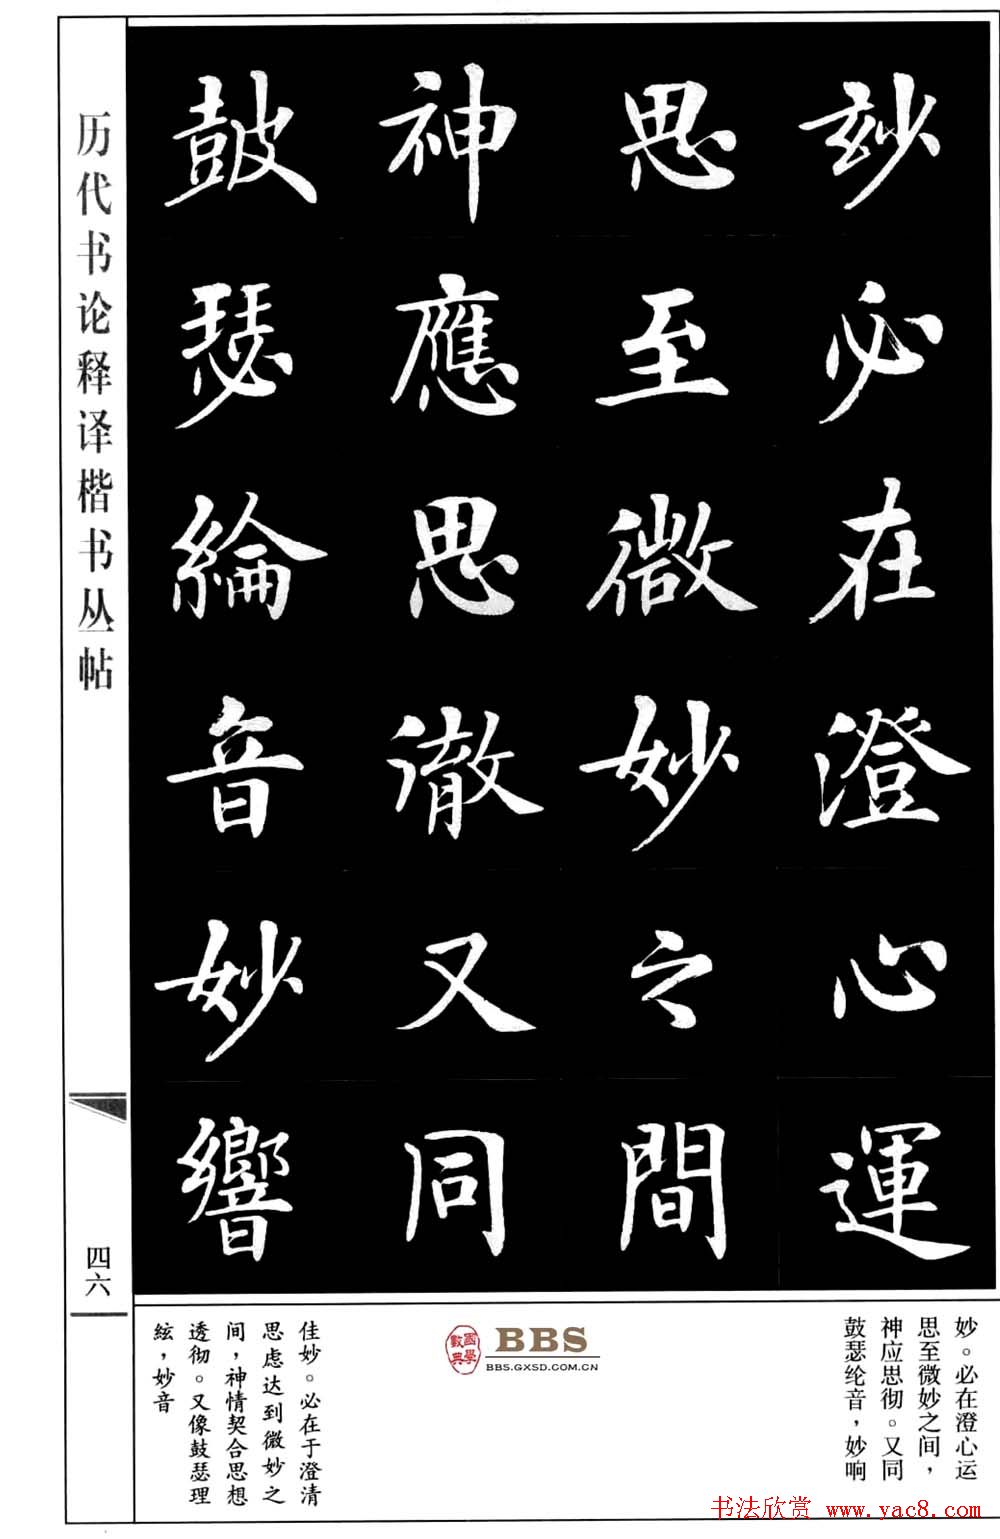 玅必在澄心運
思至微妙之間
神應思徹又同
鼓瑟綸音妙響
历代书论释译楷书丛帖
四六
妙。必在澄心运
思至微妙之间，
神应思彻。又同
鼓瑟纶音，妙响
國學數典
BBS
BBS.GXSD.COM.CN
佳妙。必在于澄清
思虑达到微妙之
间，神情契合思想
透彻。又像鼓瑟理
絃，妙音
书法欣赏 www.yac8.com